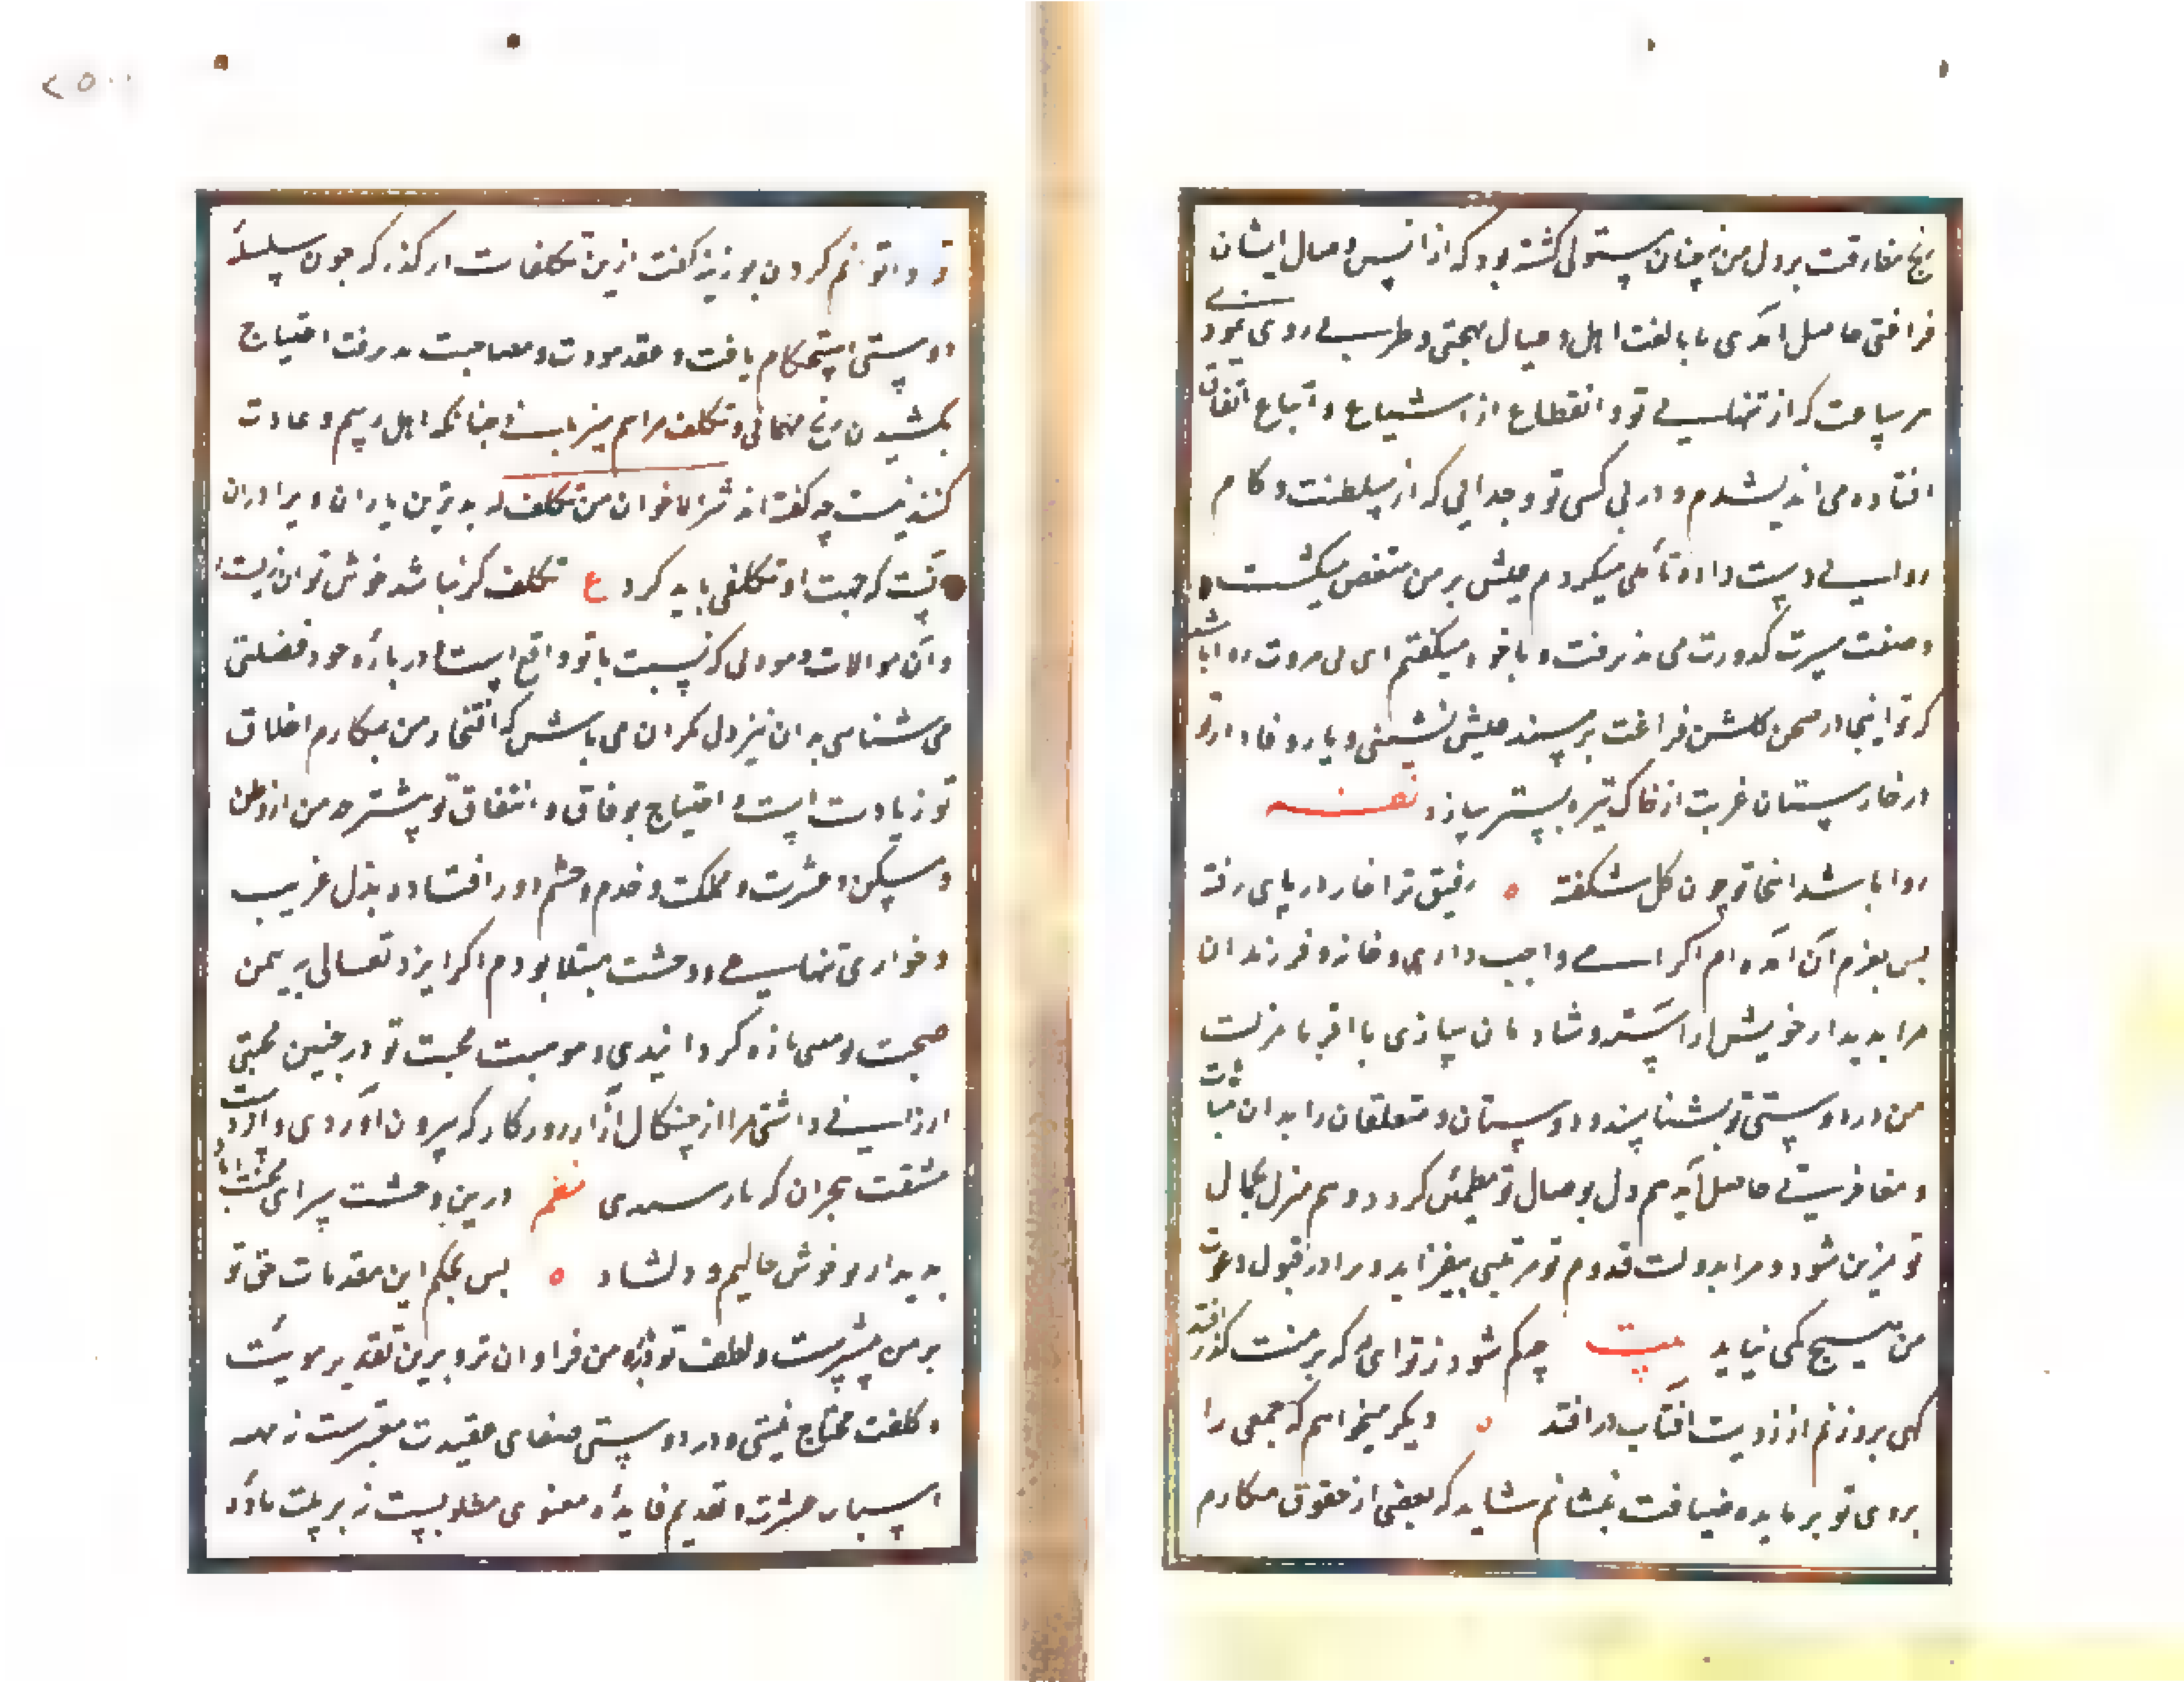 رنج مفارقت بر دل من چنان مستولی گشته بود که از انس وصال ایشان
فراغتی حاصل آمدی یا بالفت اهل و عیال بهجتی و طربی روی نمودی
هر ساعت که از تنهایی تو و انقطاع از اشیاع و اتباع اتفاق
افتاده می اندیشدم و در بی کسی تو و جدایی که از سلطنت و کام
روایی دست داده تأملی میکردم عیش بر من منغص میکشت و
و صفت مسرت کدورت می پذیرفت و با خود میکفتم ای بی مروت روا باشد
که تو اینجا در صحن کلشن فراغت بر مسند عیش نشینی و یار وفادار تو
در خارستان غربت از خاک تیره بستر سازد
روا باشد اینجا تو چون کل شکفته ه رفیق ترا خار در پای رفته
پس بعزم آن آمده ام اکرامی واجب داری و خانه و فرزندان
مرا بدیدار خویش آراسته و شادمان سازی تا اقربا منزلت
من در دوستی تو بشناسند و دوستان و متعلقان را بدان مباهات
و مفاخرتی حاصل آید هم دل بوصال تو مطمئن کردد و هم منزل بجمال
تو مزین شود و مرا بدولت قدوم تو مرتبی بیفزاید و مرا در قبول دعوت
من هیچ کمی نیاید بیت چکم شود ز تو ای که بر منت کذر افتد
کهی بروزنم از زویت آفتاب در افتد ه دیکر میخواهم که جمعی را
بروی تو بر مایده ضیافت بنشانم شاید که بعضی از حقوق مکارم
تو دا توانم کردن بوزینه کفت ازین تکلفات در کذر که چون سلسلهٔ
دوستی استحکام یافت و عقد مودت و مصاحبت پذیرفت احتیاج
بکشیدن رنج مهمانی و تکلف مراسم میزبانی چنانکه اهل رسم و عادت
کنند نیست چه کفته اند شر الاخوان من تکلف له بدترین یاران و برادران
آنست که جهت او تکلفی باید کرد ع تکلف کر نباشد خوش توان زیست
و آن موالات و مودتی که نسبت با تو واقع است و در بارهٔ خود فضلتی
می شناسی بدان نیز دل نکران می باش که افتخار من بمکارم اخلاق
تو زیادت است و احتیاج بوفاق و اتفاق تو بیشتر چه من از وطن
و مسکن و عشرت و مملکت و خدم و حشم دور افتاده و بذل غریب
و خواری تنهایی و وحشت مبتلا بودم اکر ایزد تعالی بر یمن
صحبت و می تازه کردانیدی و موهبت محبت تو در چنین محنتی
ارزانی داشتی مرا از چنکال آزار روزکار که بیرون آوردی و از دست
مشقت هجران که باز رسیدی نظم درین وحشت سرای محنت آباد
بدیدار و خوش حالیم و دلشاد ه پس بحکم این مقدمات حق تو
بر من بیشترست و لطف تو درباره من فراوان تر و برین تقدیر مونت
و کلفت محتاج نیستی و در دوستی صفای عقیدت معتبرست نه مهیه
اسباب عشرت و تقدیم فایدهٔ معنوی مطلوبست نه بریلت مادّه